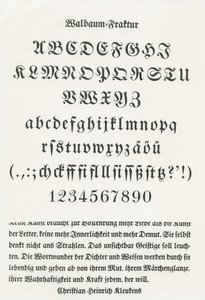 Walbaum-Fraktur
ABCDEFGHI
KLMNOPQRSTU
VWXYZ
abcdefghijklmnopq
rſstuvwxyzäöü
(.,:;chckfffiflllſiſſßſttz?'!)
1234567890
Keine Kunst braucht zur Vollendung mehr Liebe als die Kunst
der Letter, keine mehr Innerlichkeit und mehr Demut. Sie ſelbſt
denkt nicht ans Strahlen. Das unſichtbar Geiſtige ſoll leuch-
ten. Die Wortwunder der Dichter und Weiſen werden durch ſie
lebendig und geben ab von ihrem Mut, ihrem Märchenglanze,
ihrer Wahrhaftigkeit und Kraft jedem, der will.
Chriſtian Heinrich Kleukens